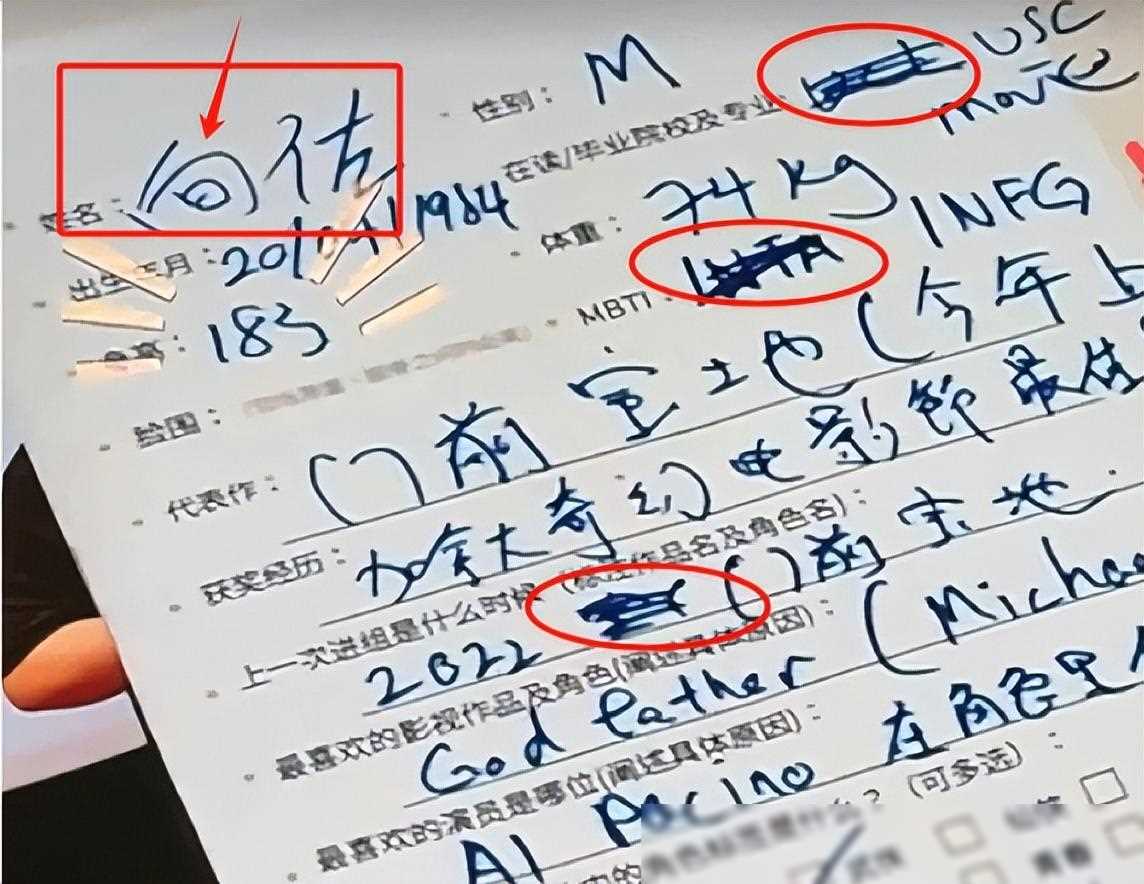 姓名： 向佐 性别： M
在读/毕业院校及专业： USC
movie
出生年月： 20/ 1984 体重： 74kg
183 MBTI： INFG
脸图：
代表作： 门前宝地（今年上
获奖经历： 加拿大奇幻电影節最佳
上一次进组是什么时候 作品名及角色名）：
2022 门前宝地.
最喜欢的影视作品及角色(阐述具体原因)：
God father (Michae
最喜欢的演员是哪位(阐述具体原因)：
Al Pacino 在角色里
是什么？（可多选）：
青春